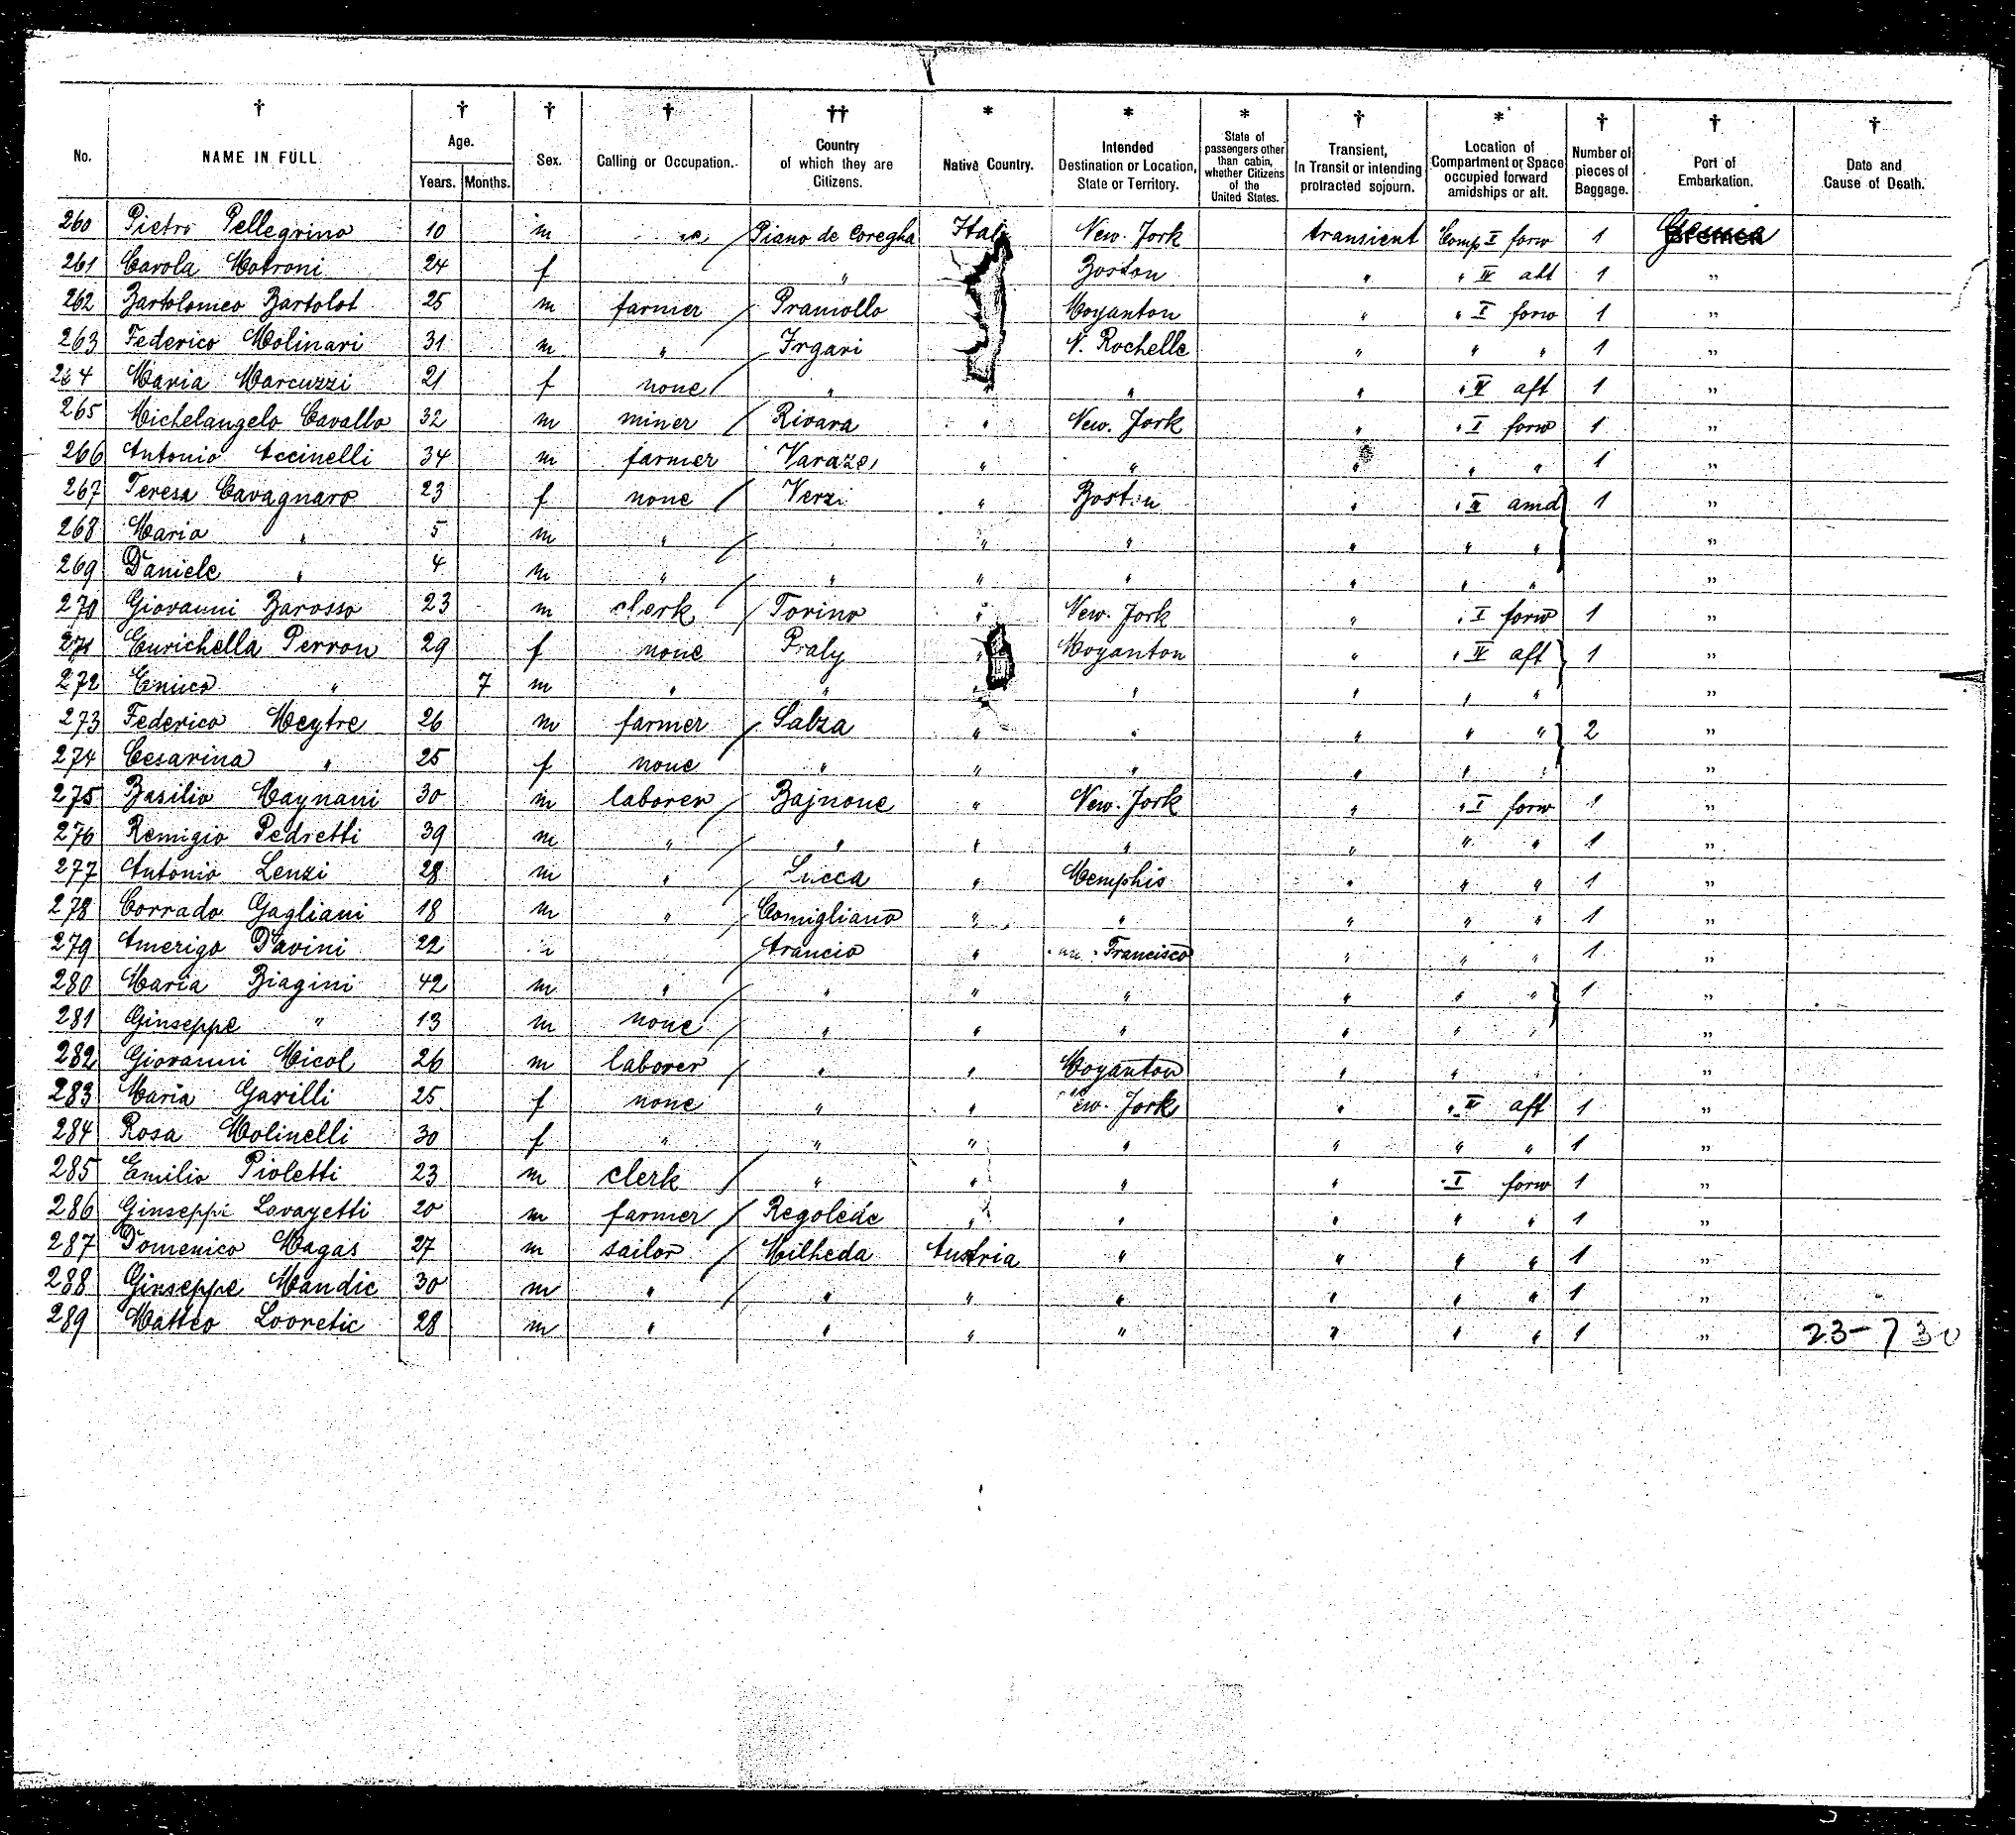 † † † † †† * * * † * † † †
No. NAME IN FULL. Age. Years. Months. Sex. Calling or Occupation. Country of which they are Citizens. Native Country. Intended Destination or Location, State or Territory. State of passengers other than cabin, whether Citizens of the United States. Transient, In Transit or intending protracted sojourn. Location of Compartment or Space occupied forward amidships or aft. Number of pieces of Baggage. Port of Embarkation. Date and Cause of Death.
260 Pietro Pellegrino 10 m Piano de Coregha Italy New York transient Comp I forw 1 Genua Bremen
261 Carola Motroni 24 f " Boston " " IV aft 1 "
262 Bartolomeo Bartolot 25 m farmer / Pramollo Moyanton " " I forw 1 "
263 Federico Molinari 31 m " / Irgari N. Rochelle " " " 1 "
264 Maria Marcuzzi 21 f none / " " " " IV aft 1 "
265 Michelangelo Cavallo 32 m miner / Rivara " New York " " I forw 1 "
266 Antonio Accinelli 34 m farmer Varaze " " " " " 1 "
267 Teresa Cavagnaro 23 f none / Verzi " Boston " " II amd } 1 "
268 Maria " 5 m " / " " " " " " "
269 Daniele " 4 m " / " " " " " " "
270 Giovanni Barosso 23 m clerk / Torino " New York " " I forw 1 "
271 Enrichella Perron 29 f none Praly " Moyanton " " IV aft } 1 "
272 Enrico " 7 m " " " " " " " "
273 Federico Meytre 26 m farmer / Salza " " " " " } 2 "
274 Cesarina " 25 f none " " " " " " "
275 Basilio Maynani 30 m laborer / Bajnone " New York " " I forw 1 "
276 Remigio Pedretti 39 m " / " " " " " " 1 "
277 Antonio Lenzi 28 m " / Lucca " Memphis " " " 1 "
278 Corrado Gagliani 18 m " / Comigliano " " " " " 1 "
279 Amerigo Davini 22 Arancio " Francisco " " " 1 "
280 Maria Biagini 42 m " / " " " " " " } 1 "
281 Giuseppe " 13 m none / " " " " " " "
282 Giovanni Micol 26 m laborer / " " Moyanton " " " "
283 Maria Garilli 25 f none " " New York " " II aft 1 "
284 Rosa Molinelli 30 f " " " " " " " 1 "
285 Emilio Pioletti 23 m clerk / " " " " " I forw 1 "
286 Giuseppe Lavayetti 20 m farmer / Regolede " " " " " 1 "
287 Domenico Magas 27 m sailor / Milheda Austria " " " " 1 "
288 Giuseppe Mandic 30 m " / " " " " " " 1 "
289 Matteo Lovretic 28 m " " " " " " " 1 " 23-730